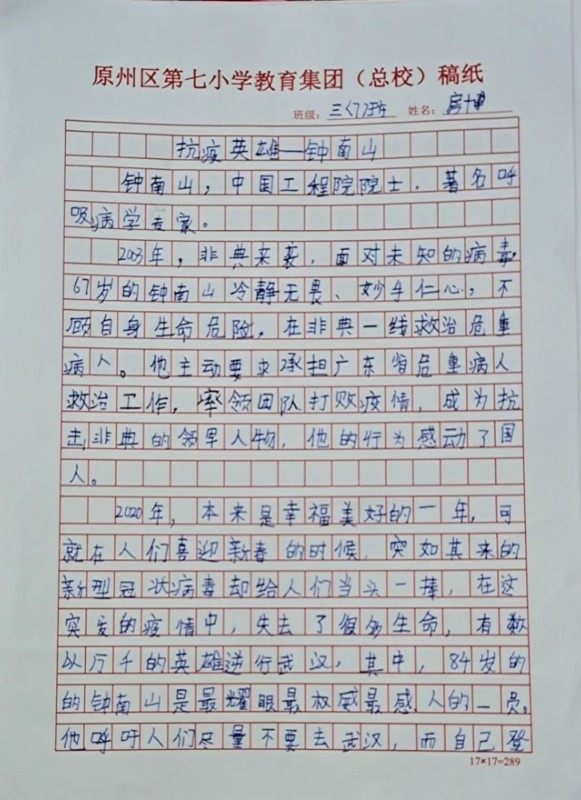 原州区第七小学教育集团（总校）稿纸
班级：三(7)班 姓名：
抗疫英雄—钟南山
钟南山，中国工程院院士．著名呼
吸病学专家。
2003年，非典来袭，面对未知的病毒，
67岁的钟南山冷静无畏、妙手仁心，不
顾自身生命危险，在非典一线救治危重
病人。他主动要求承担广东省危重病人
救治工作，率领团队打败疫情，成为抗
击非典的领军人物，他的行为感动了国
人。
2020年，本来是幸福美好的一年，可
就在人们喜迎新春的时候，突如其来的
新型冠状病毒却给人们当头一捧，在这
突发的疫情中，失去了很多生命，有数
以万千的英雄逆行武汉，其中，84岁的
的钟南山是最耀眼最权威最感人的一员，
他呼吁人们尽量不要去武汉，而自己登
17×17=289